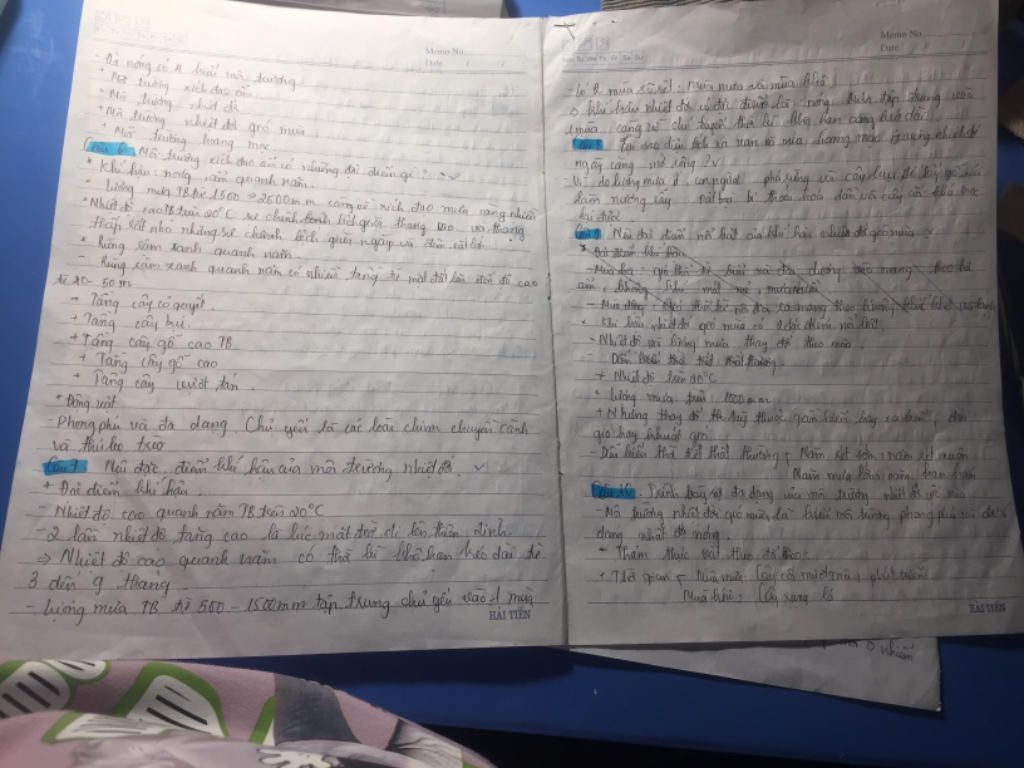 Memo No.
Date / /
- Đới nóng có 4 kiểu môi trường
+ Môi trường xích đạo ẩm
+ Môi trường nhiệt đới
+ Môi trường nhiệt đới gió mùa
+ Môi trường hoang mạc
Câu 6: Môi trường xích đạo ẩm có những đặc điểm gì?
* Khí hậu: nóng, ẩm quanh năm.
* Lượng mưa TB từ 1500 → 2500mm càng về xích đạo mưa càng nhiều
- Nhiệt độ cao TB trên 20°C sự chênh lệch giữa tháng cao và tháng
thấp rất nhỏ nhưng sự chênh lệch giữa ngày và đêm rất lớn.
* Rừng rậm xanh quanh năm
- Rừng rậm xanh quanh năm có nhiều tầng từ mặt đất lên đến độ cao
từ 40 - 50 m
- Tầng cây cỏ quyết.
+ Tầng cây bụi.
+ Tầng cây gỗ cao TB
+ Tầng cây gỗ cao
+ Tầng cây vượt tán.
* Động vật
- Phong phú và đa dạng. Chủ yếu là các loài chim chuyền cành
và thú leo trèo
Câu 7: Nêu đặc điểm khí hậu của môi trường nhiệt đới.
+ Đặc điểm khí hậu
- Nhiệt độ cao quanh năm TB trên 20°C
- 2 lần nhiệt độ tăng cao là lúc mặt trời đi lên thiên đỉnh.
⇒ Nhiệt độ cao quanh năm có thời kì khô hạn kéo dài từ
3 đến 9 tháng
- lượng mưa TB từ 500 - 1500mm tập trung chủ yếu vào 1 mùa
HẢI TIẾN
Memo No.
Date / /
- Có 2 mùa rõ rệt: Mùa mưa và mùa khô
⇒ Khí hậu nhiệt đới có đặc điểm là nóng, mưa tập trung vào
1 mùa, càng về chí tuyến thời kì khô hạn càng kéo dài
Câu 8 Tại sao diện tích xa van và nửa hoang mạc ở vùng nhiệt đới
ngày càng mở rộng?
- Vì do lượng mưa ít, con người phá rừng và cây bụi để lấy gỗ và
làm nương rẫy đất bị thoái hoá dần và cây cối khó mọc
lại được
Câu 9 Nêu đặc điểm nổi bật của khí hậu nhiệt đới gió mùa
* Đặc điểm khí hậu
- Mùa hạ: gió thổi từ
ẩm, không khí mát mẻ, mưa nhiều
- Mùa đông:
* Khí hậu nhiệt đới gió mùa có 2 đặc điểm nổi bật.
- Nhiệt độ và lượng mưa thay đổi theo mùa
- Diễn biến thời tiết thất thường.
+ Nhiệt độ trên 20°C
+ Lượng mưa trên 1000mm
+ Nhưng thay đổi tuỳ thuộc gần biển hay xa biển, đón
gió hay khuất gió.
- Diễn biến thời tiết thất thường Năm rét sớm, năm rét muộn
Năm mưa lớn, năm hạn hán
Câu 10: Trình bày sự đa dạng của môi trường nhiệt đới gió mùa
- Môi trường nhiệt đới gió mùa là kiểu môi trường phong phú và đa
dạng nhất đới nóng.
- Thảm thực vật thay đổi theo:
+ Thời gian Mùa mưa: Cây cối mượt mà, phát triển
Mùa khô: Cây rụng lá
HẢI TIẾN
ô nhiễm